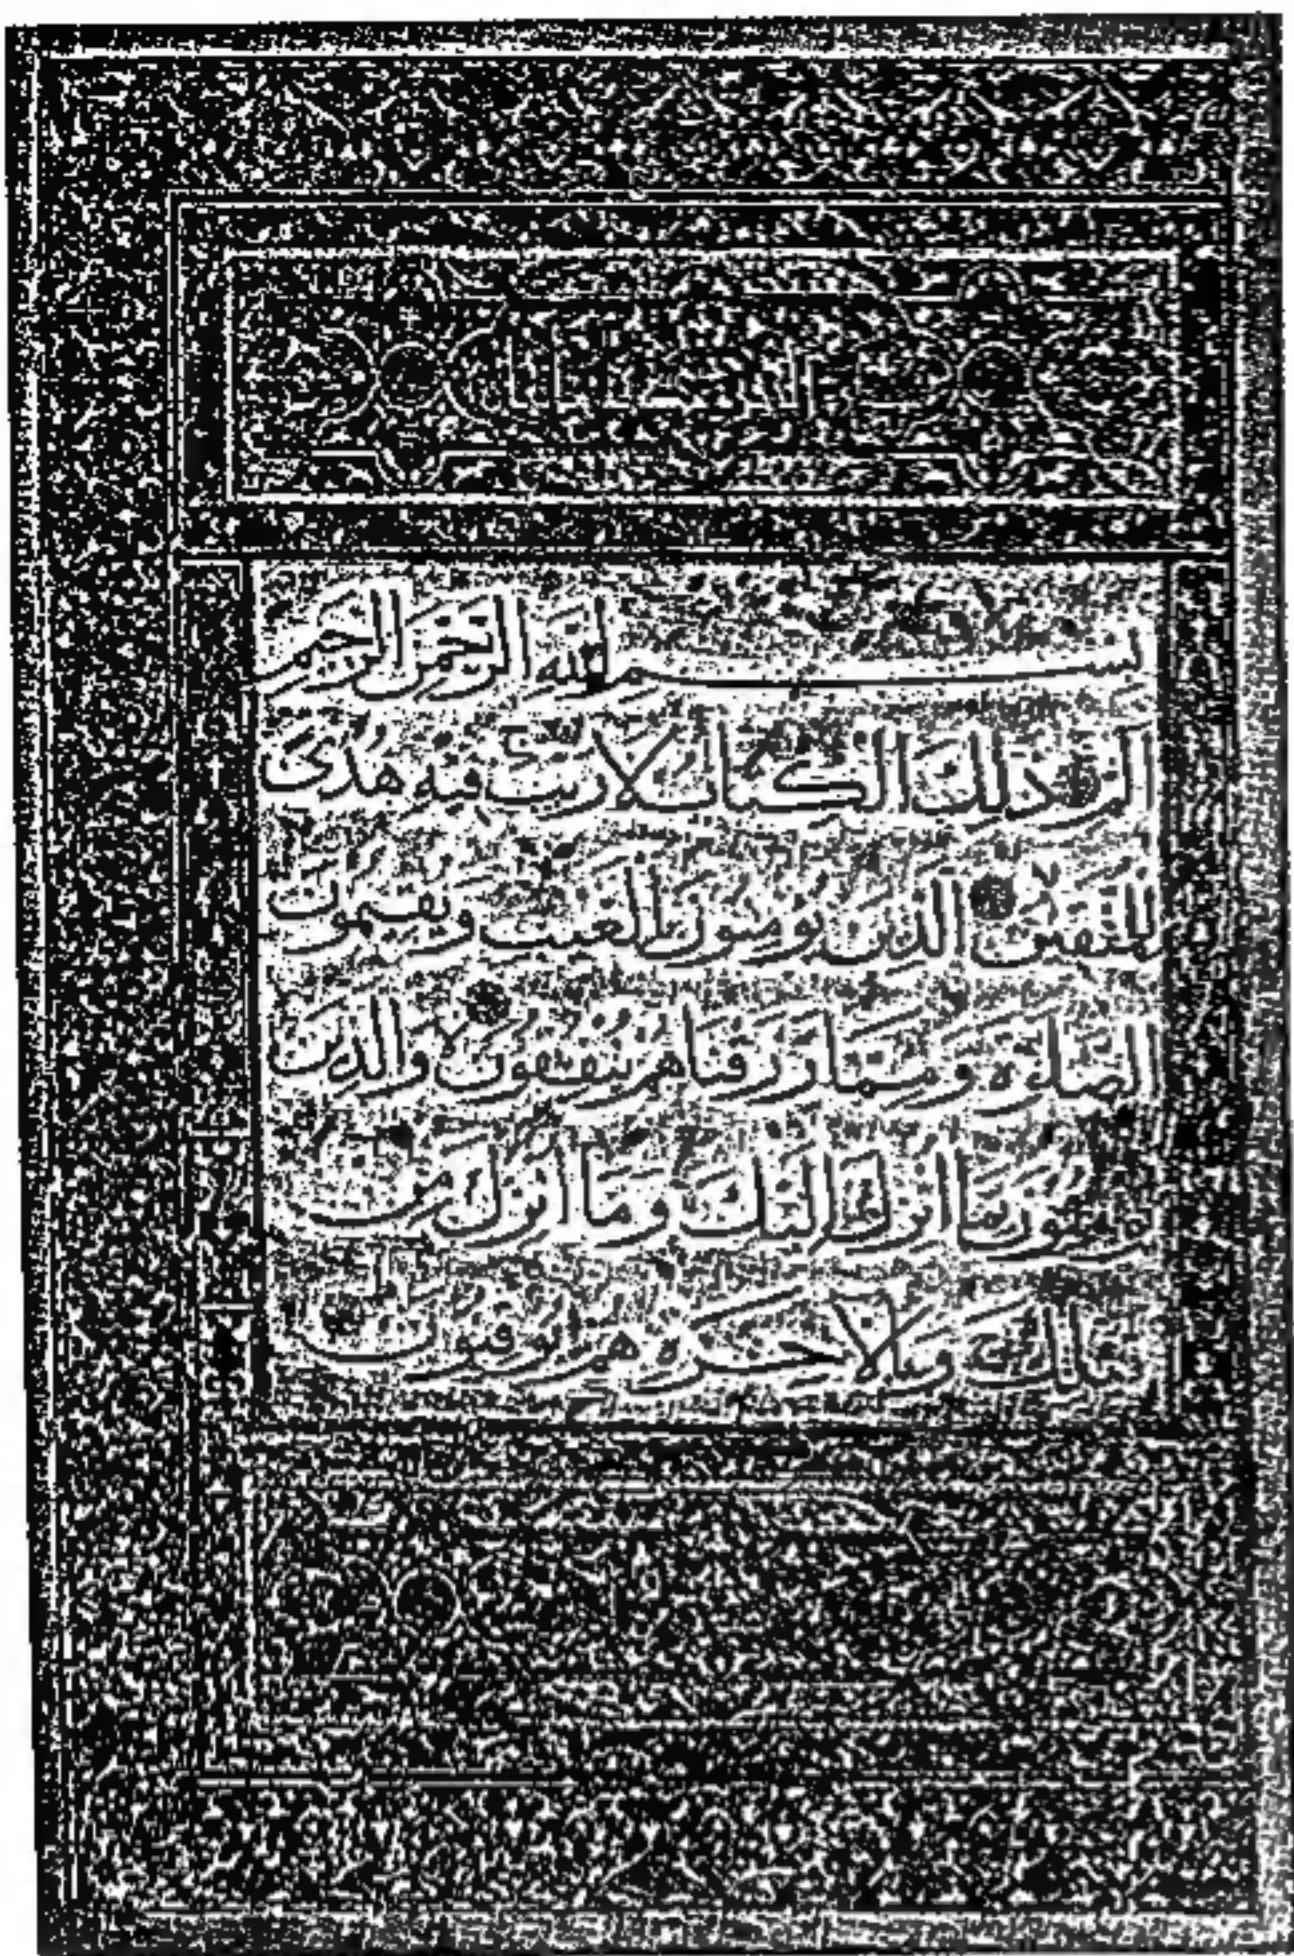 بسم الله الرحمن الرحيم
الم ذلك الكتاب لا ريب فيه هدى
للمتقين الذين يؤمنون بالغيب ويقيمون
الصلوة ومما رزقناهم ينفقون والذين
يؤمنون بما انزل اليك وما انزل من
قبلك وبالآخرة هم يوقنون